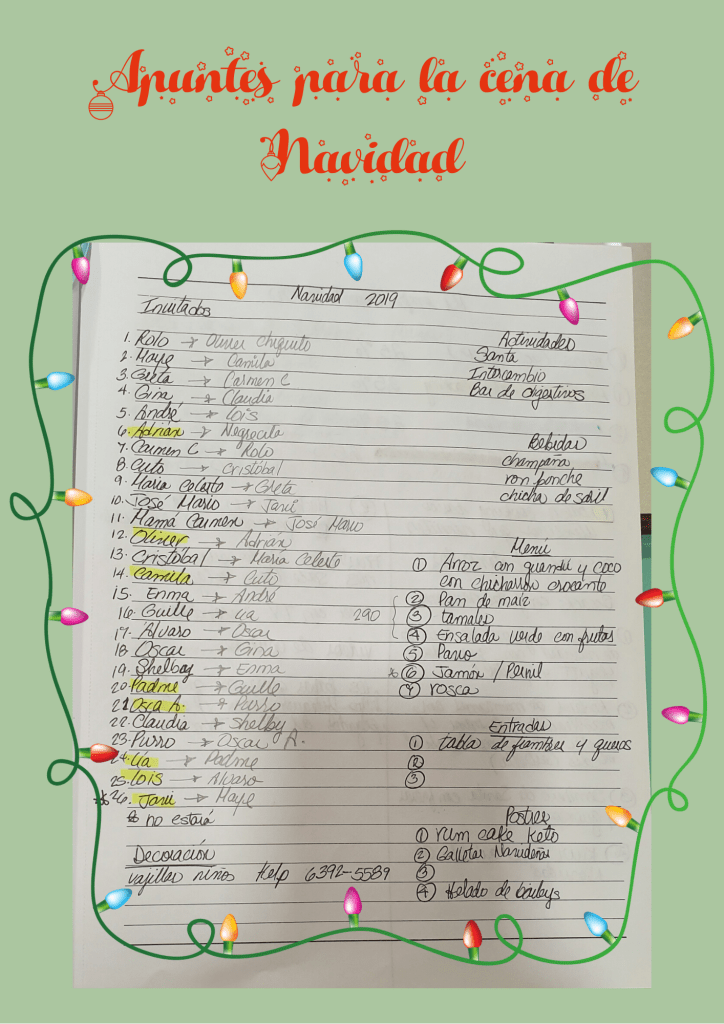 Apuntes para la cena de
Navidad
Navidad 2019
Invitados
1. Rolo → Olivier chiquito
2. Maye → Camila
3. Greta → Carmen C
4. Gina → Claudia
5. André → Lois
6. Adrián → Negrecita
7. Carmen C → Rolo
8. Cuto → Cristóbal
9. María Celeste → Greta
10. José Mario → Javi
11. Mamá Carmen → José Mario
12. Olivier → Adrián
13. Cristóbal → María Celeste
14. Camila → Cuto
15. Enma → André
16. Guille → Lia
17. Alvaro → Oscar
18 Oscar → Gina
19. Shelby → Enma
20. Padme → Guille
21 Osca A. → Purro
22. Claudia → Shelby
23. Purro → Oscar A.
24. Lia → Padme
25. Lois → Alvaro
* 26. Javi → Maye
* no estará
Decoración
vajillas niños Help 6392-5589
Actividades
Santa
Intercambio
Bar de digestivos
Bebidas
champaña
ron ponche
chicha de saril
Menú
① Arroz con guandú y coco
con chicharron crocante
② Pan de maíz
290 ③ tamales
④ Ensalada verde con frutas
⑤ Pavo
* ⑥ Jamón / Pernil
⑦ rosca
Entradas
① tabla de fiambres y quesos
②
③
Postres
① rum cake keto
② Galletas Navideñas
③
④ Helado de baileys